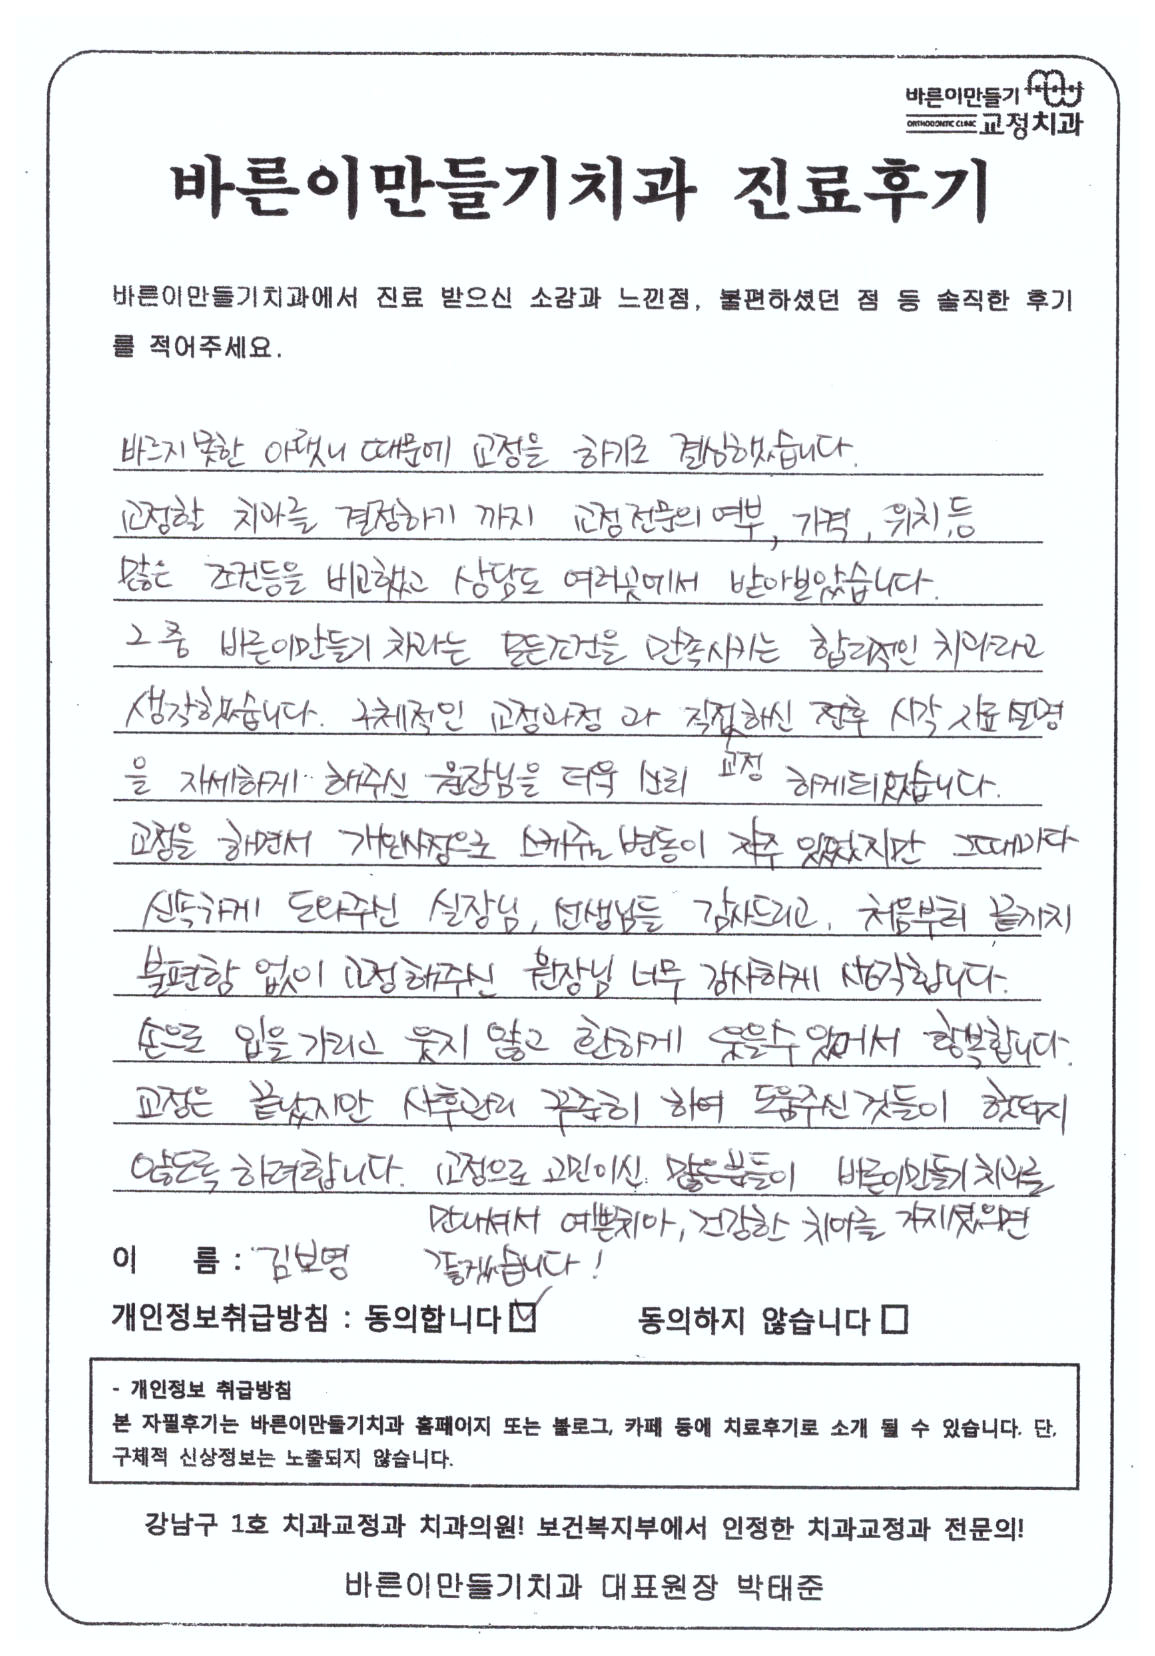 바른이만들기
ORTHODONTIC CLINIC 교정치과
바른이만들기치과 진료후기
바른이만들기치과에서 진료 받으신 소감과 느낀점, 불편하셨던 점 등 솔직한 후기
를 적어주세요.
바르지못한 아랫니 때문에 교정을 하기로 결심했습니다.
교정할 치과를 결정하기 까지 교정전문의 여부, 가격, 위치,등
많은 조건등을 비교했고 상담도 여러곳에서 받아보았습니다.
그 중 바른이만들기 치과는 모든조건을 만족시키는 합리적인 치과라고
생각했습니다. 구체적인 교정과정 과 직접하신 전후 시각 자료 설명
을 자세하게 해주신 원장님을 더욱 신뢰 교정 하게되었습니다.
교정을 하면서 개인사정으로 스케쥴 변동이 자주 있었지만 그때마다
신속하게 도와주신 실장님, 선생님들 감사드리고, 처음부터 끝까지
불편함 없이 교정해주신 원장님 너무 감사하게 생각합니다.
손으로 입을 가리고 웃지 않고 환하게 웃을수 있어서 행복합니다.
교정은 끝났지만 사후관리 꾸준히 하여 도움주신것들이 헛되지
않도록 하려합니다. 교정으로 고민이신 많은분들이 바른이만들기치과를
만나셔서 예쁜치아, 건강한 치아를 가지셨으면
이 름 : 김보영 좋겠습니다!
개인정보취급방침 : 동의합니다 ☑ 동의하지 않습니다 □
- 개인정보 취급방침
본 자필후기는 바른이만들기치과 홈페이지 또는 블로그, 카페 등에 치료후기로 소개 될 수 있습니다. 단,
구체적 신상정보는 노출되지 않습니다.
강남구 1호 치과교정과 치과의원! 보건복지부에서 인정한 치과교정과 전문의!
바른이만들기치과 대표원장 박태준